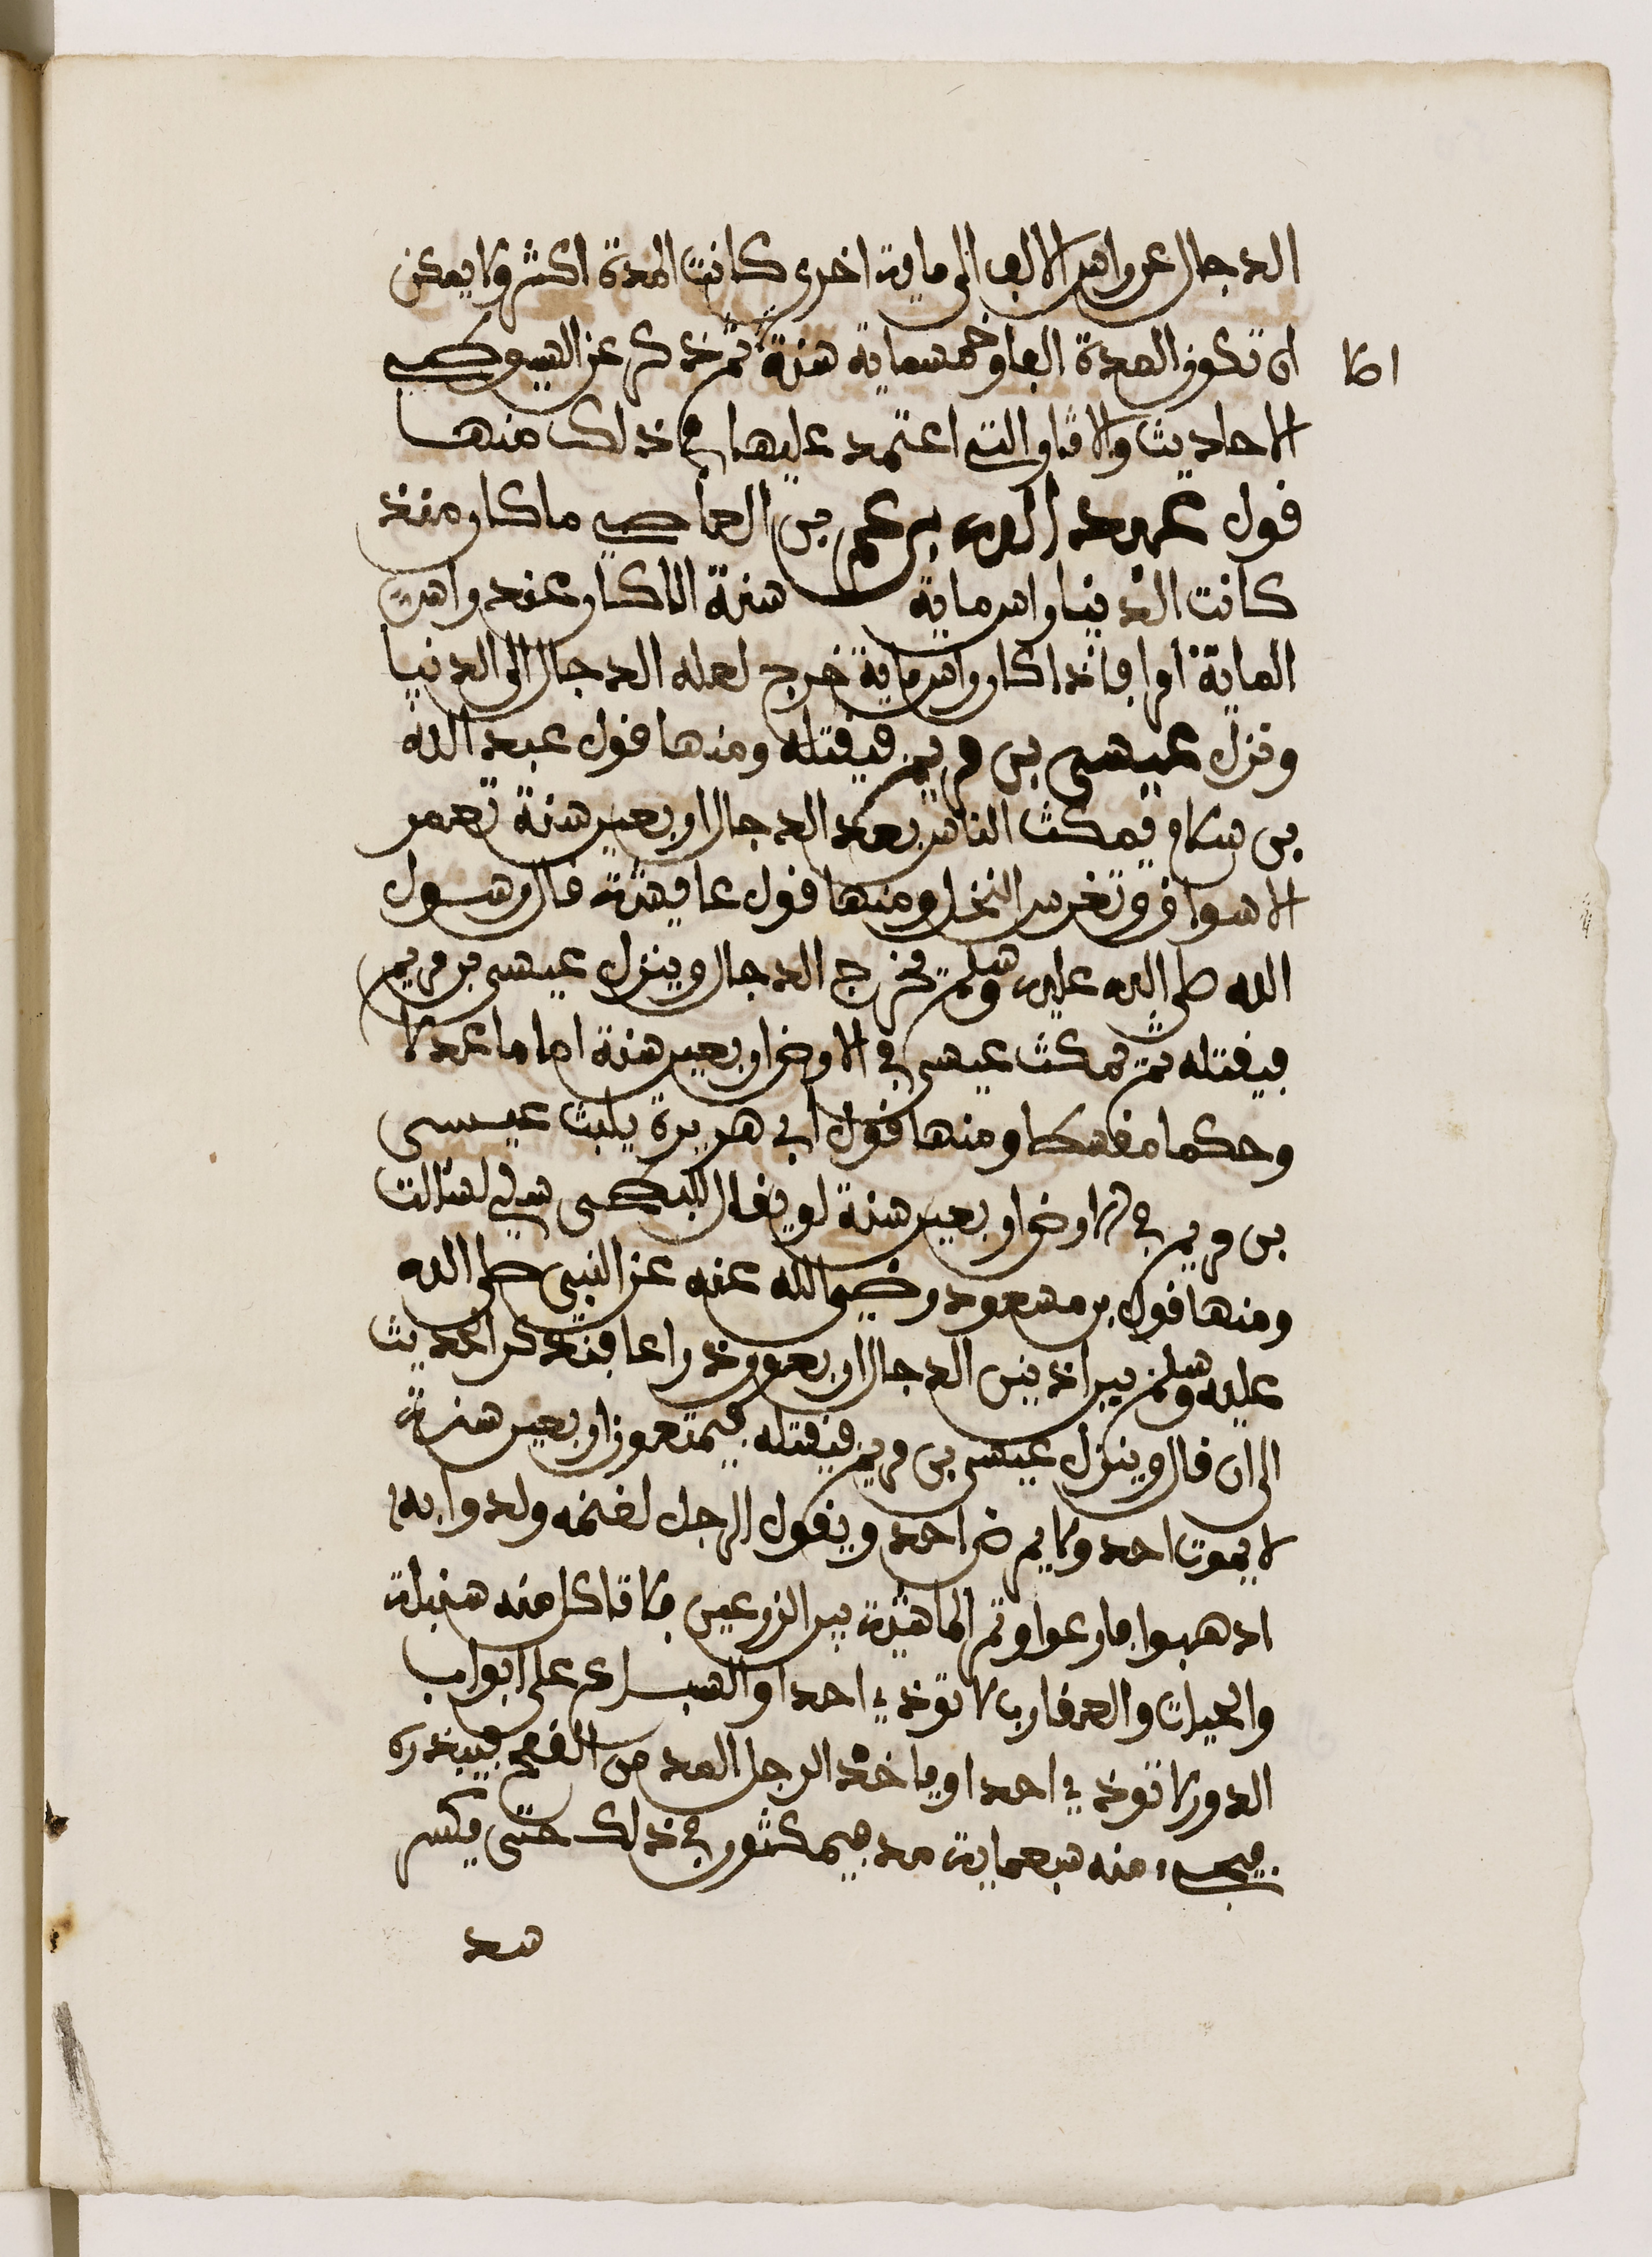 الدجال عن راس الالف الى ماية اخرى كانت المدة اكثر ولا يمكن
ان تكون المدة الفا وخمسماية سنة ثم ذكر عن السيوطي
الا
الاحاديث والاثار التي اعتمد عليها في ذلك منها
قول عبد الله بن عمر بن العاصي ما كان منذ
كانت الدنيا راس ماية سنة الا كان عند راس
الماية امر فاذا كان راس ماية خرج لعله الدجال الى الدنيا
ونزل عيسى بن مريم فيقتله ومنها قول عبد الله
بن سلام يمكث الناس بعد الدجال اربعين سنة تعمر
الاسواق وتغرس النخل ومنها قول عايشة قال رسول
الله صلى الله عليه وسلم يخرج الدجال وينزل عيسى بن مريم
فيقتله ثم يمكث عيسى في الارض اربعين سنة اماما عدلا
وحكما مقسطا ومنها قول ابي هريرة يلبث عيسى
بن مريم في الارض اربعين سنة لو يقال للبطحى سيلي لسالت
ومنها قول بن مسعود رضي الله عنه عن النبي صلى الله
عليه وسلم بين اذنين الدجال اربعون ذراعا فتذكر الحديث
الى ان قال وينزل عيسى بن مريم فيقتله فيمتعون اربعين سنة
لا يموت احد ولا يمرض احد ويقول الرجل لغنمه ولدوابه
اذهبوا فارعوا وتمر الماشية بين الزرعين فلا تاكل منه سنبلة
والحيات والعقارب لا توذي احدا والسباع على ابواب
الدور لا توذي احدا وياخذ الرجل المد من القمح فيبذره
فيجيء منه سبعماية مد فيمكثون في ذلك حتى يكسر
سد